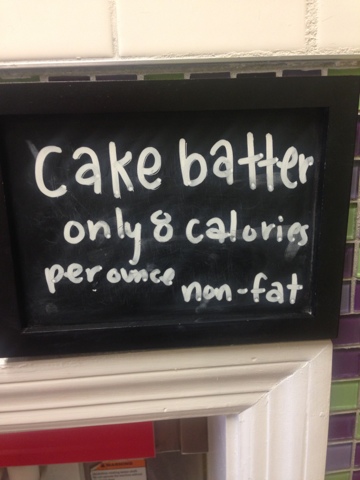 Cake batter
only 8 calories
per ounce non-fat